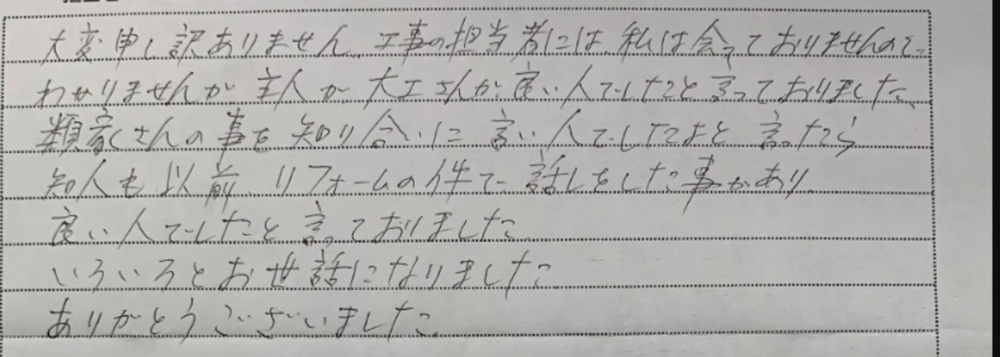 大変申し訳ありません、工事の担当者には私は会っておりませんので、
わかりませんが主人が、大工さんが良い人でしたと言っておりました、
類家さんの事を知り合いに言い人でしたよと言ったら
知人も以前、リフォームの件で話しをした事があり
良い人でしたと言っておりました。
いろいろとお世話になりました。
ありがとうございました。